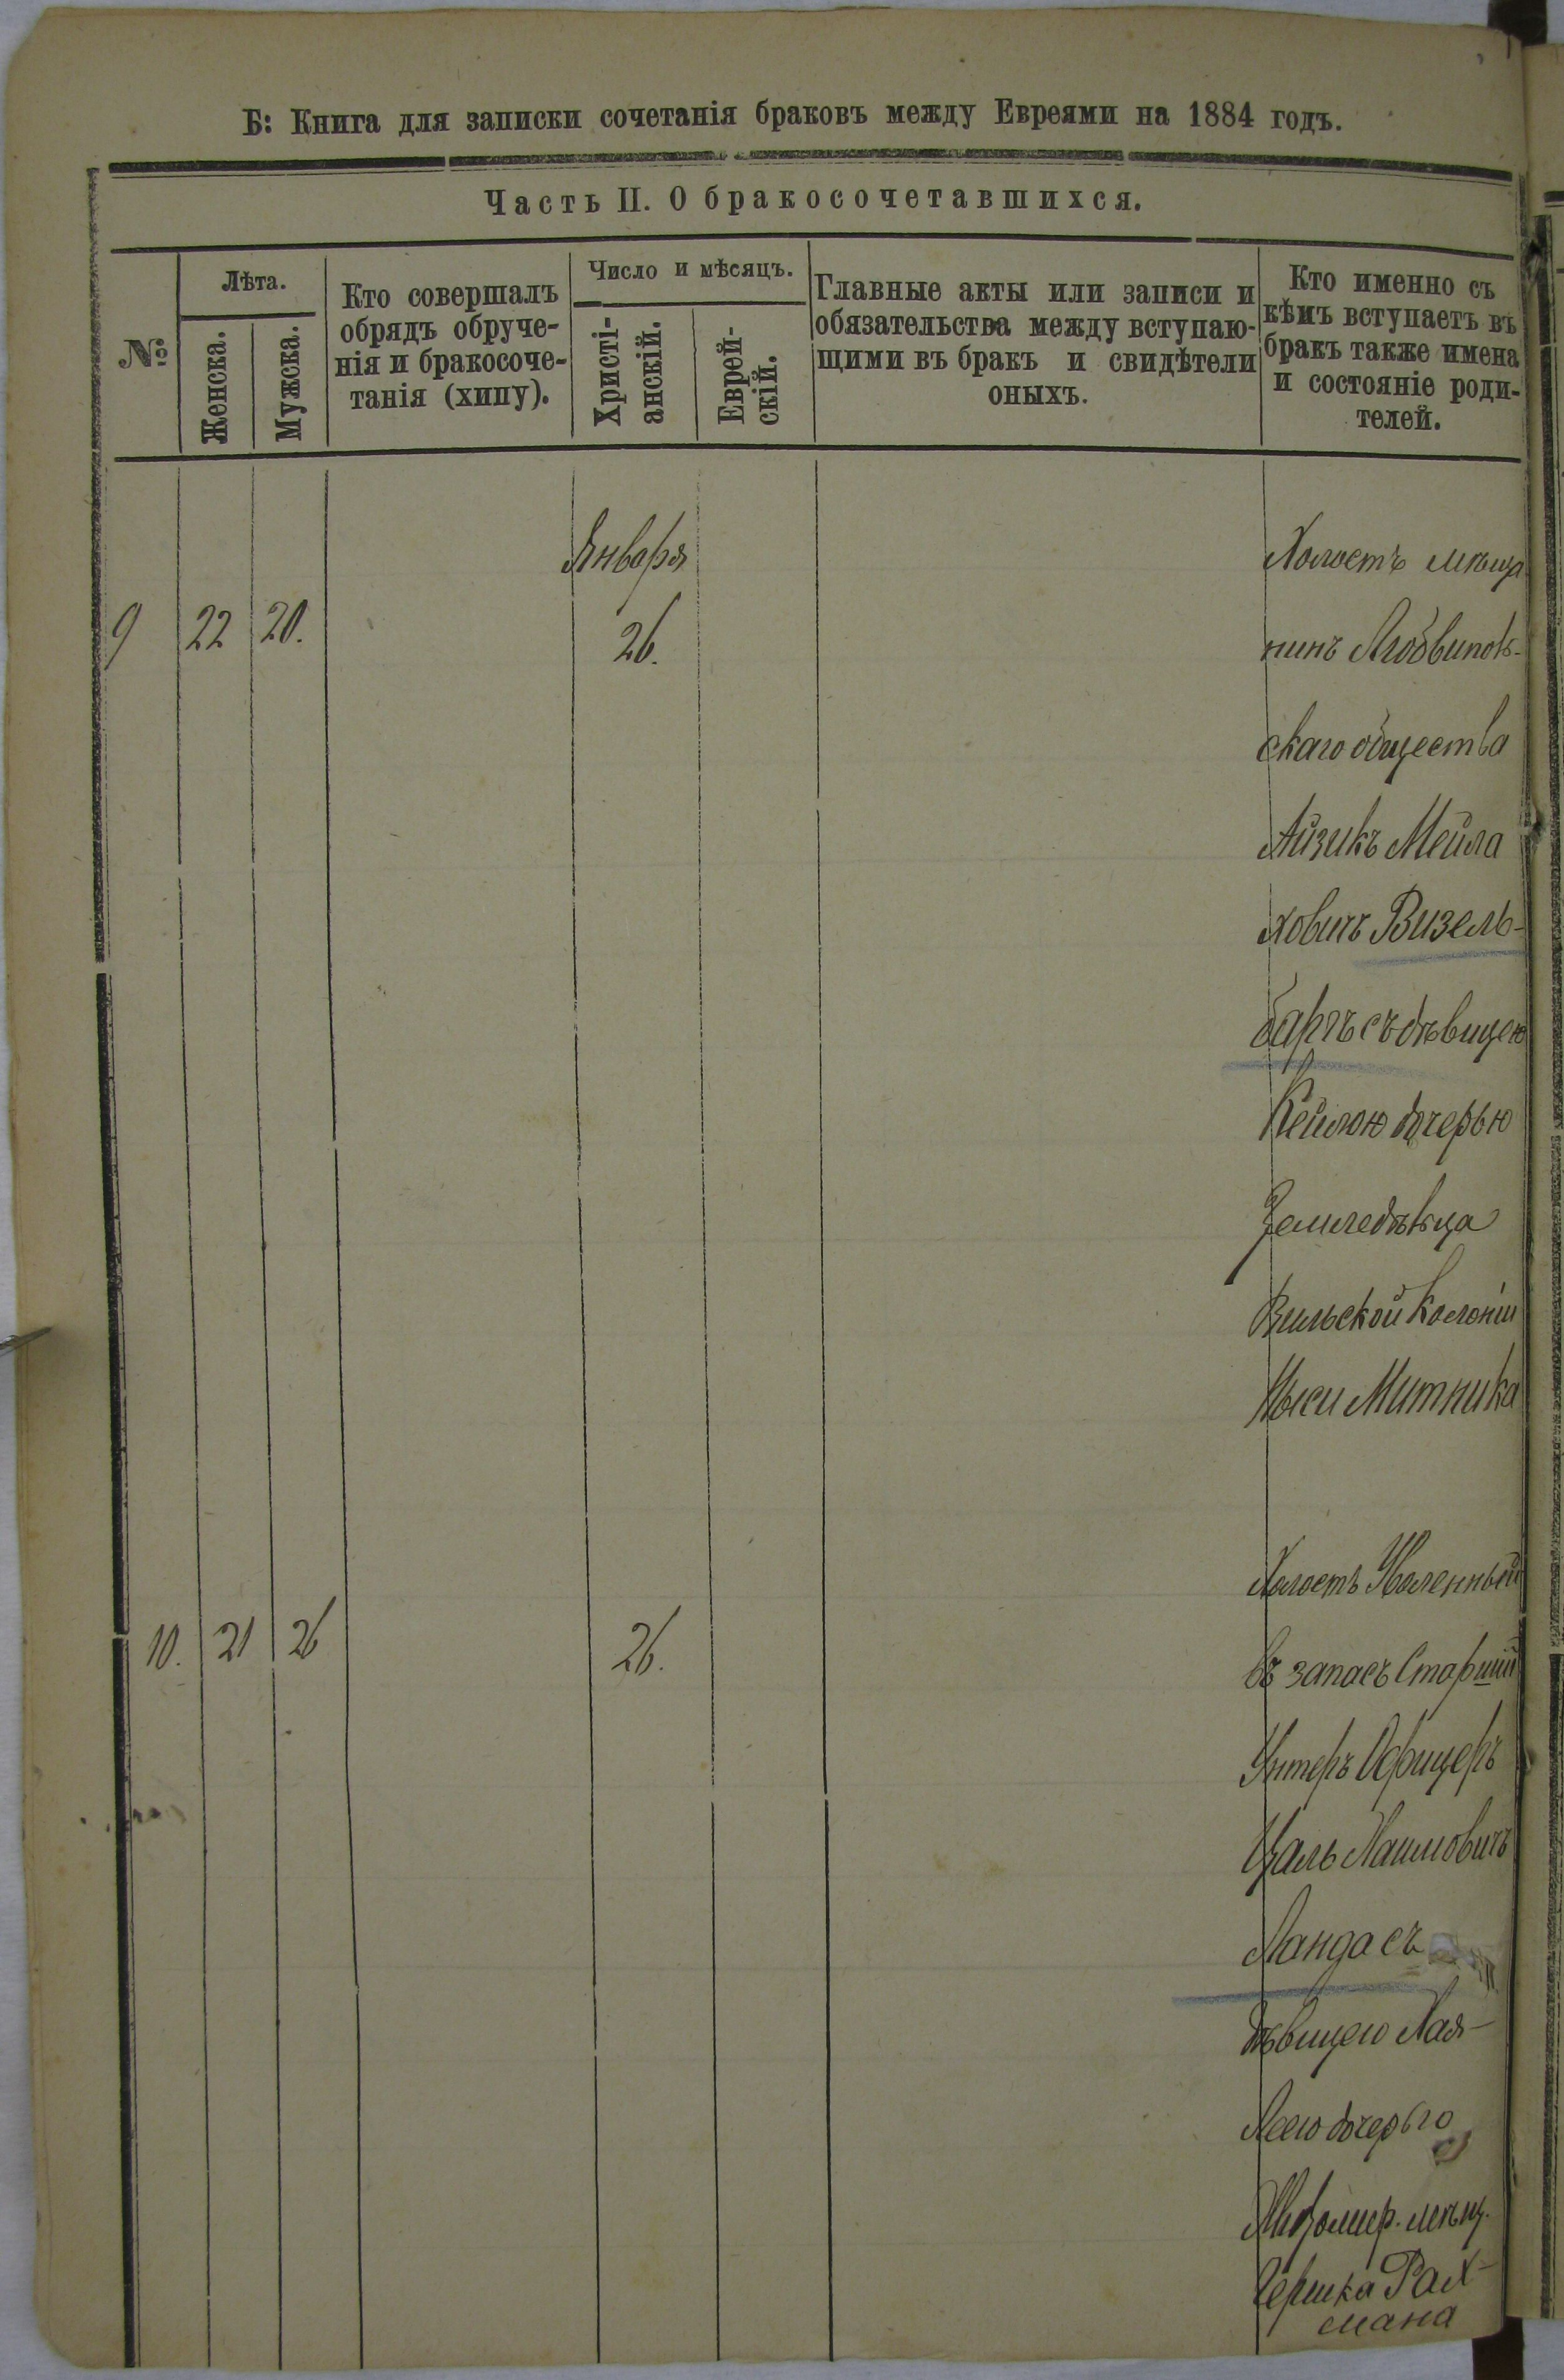 Б: Книга для записки сочетанія браковъ между Евреями на 1884 годъ.
Часть II. О бракосочетавшихся.
№
Лѣта.
Женска.
Мужска.
Кто совершалъ
обрядъ обруче-
нія и бракосоче-
танія (хипу).
Число и мѣсяцъ.
Христі-
анскій.
Еврей-
скій.
Главные акты или записи и
обязательства между вступаю-
щими въ бракъ и свидѣтели
оныхъ.
Кто именно съ
кѣмъ вступаетъ въ
бракъ также имена
и состояніе роди-
телей.
Января
9 22 20. 26.
Холостъ мѣща
нинъ
скаго общества
Айзикъ Мейла
ховичъ Визель-
баргъ съ дѣвицею
Кейлою дочерью
Земледѣльца
Вильской Колоніи
Мыси Митника
10. 21 26 26.
Холостъ Уволенный
въ запасъ Старшій
Унтеръ Офицеръ
Цаль Хаимовичъ
Ланда съ
дѣвицею Хая-
Леею дочерью
Житомир. мѣщ.
Гершка Рах-
мана